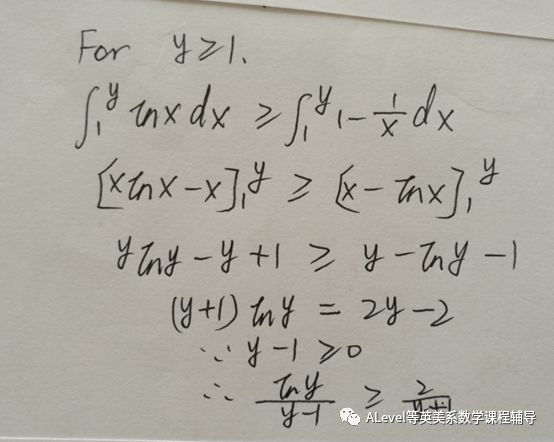 For y≥1.
∫₁^y lnx dx ≥ ∫₁^y 1 - 1/x dx
[xlnx - x]₁^y ≥ [x - lnx]₁^y
ylny - y + 1 ≥ y - lny - 1
(y+1) lny = 2y - 2
∵ y - 1 ≥ 0
∴ lny/(y-1) ≥ 2/
ALevel等英美系数学课程辅导